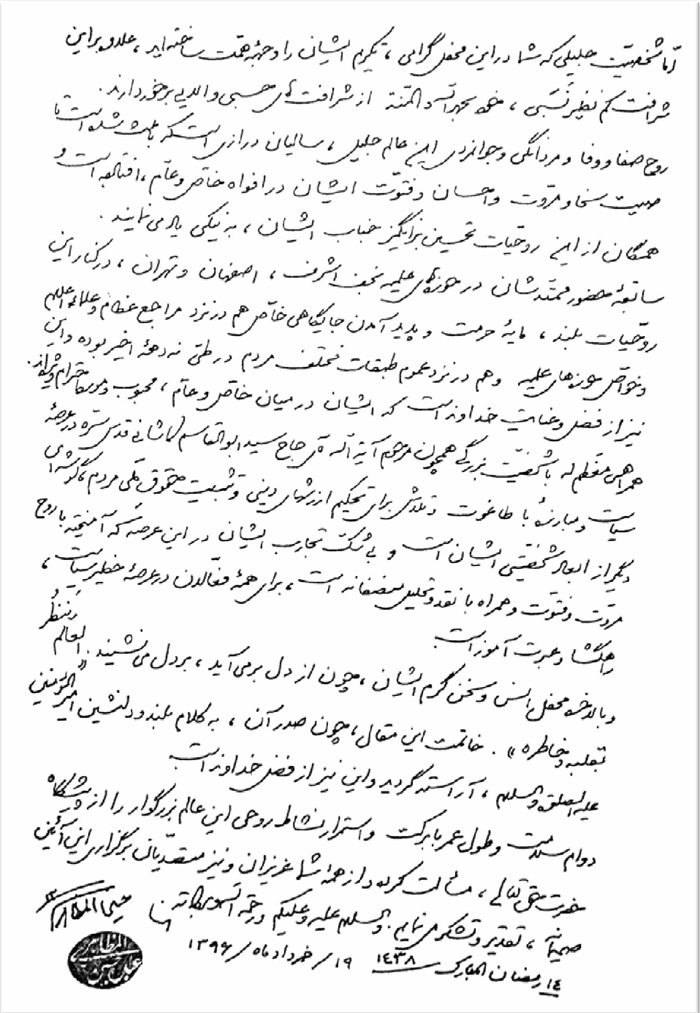 امّا شخصیّت جلیلی که شما در این محفل گرامی، تکریم ایشان را وجههٔ همّت ساخته‌اید، علاوه بر این
شرافت کم نظیر نَسَبی، بحمدالله و المنّة از شرافت‌های حسبی والایی برخوردارند.
روح صفا و وفا و مردانگی و جوانمردی این عالم جلیل، سالیان درازی است که باعث شده است تا
صیت سخا و مروّت و احسان و فتوّت ایشان در افواه خاصّ و عامّ، افتاده است و
همگان از این روحیّات تحسین برانگیز جناب ایشان، به نیکی یاد می‌نمایند.
سابقهٔ حضور ممتدشان در حوزه‌های علمیه نجف اشرف، اصفهان و تهران، در کنار این
روحیّات بلند، مایهٔ حرمت و پدید آمدن جایگاهی خاصّ هم در نزد مراجع عظام و علماء اعلام
و خواصّ حوزه‌های علمیه و هم در نزد عموم طبقات مختلف مردم در طیّ نه دههٔ اخیر بوده و این
نیز از فضل و عنایت خداوند است که ایشان در میان خاصّ و عامّ، محبوب و مورد احترام و
همراهی معظم له با شخصیّت بزرگی همچون مرحوم آیة الله آقای حاج سید ابوالقاسم کاشانی قدّس سرّه در عرصهٔ
سیاست و مبارزهٔ با طاغوت و تلاش برای تحکیم ارزشهای دینی و تثبیت حقوق ملّی مردم، گوشه‌ای
دیگر از ابعاد شخصیّتی ایشان است و بی‌شک تجارب ایشان در این عرصه که آمیختهٔ با روح
مروّت و فتوّت و همراه با نقد و تحلیل منصفانه است، برای همهٔ فعّالان در عرصهٔ خطیر سیاست،
راهگشا و عبرت آموز است.
و بالاخره محفل انس و سخن گرم ایشان، چون از دل برمی‌آید، بر دل می‌نشیند. «العالم یَنظُرُ
بقلبه و خاطره». خاتمت این مقال، چون صدر آن، به کلام بلند و دلنشین امیرالمؤمنین
علیه الصلوة والسلام، آراسته گردید و این نیز از فضل خداوند است.
دوام سلامت و طول عمر با برکت و استمرار نشاط روحی این عالم بزرگوار را از پیشگاه
حضرت حق تعالی، مسألت کرده و از همهٔ شما عزیزان و نیز متصدّیان برگزاری این آئین
صمیمانه، تقدیر و تشکر می‌نمایم. والسلام علیه و علیکم و رحمة الله و برکاته
۱۴ رمضان المبارک ۱۴۳۸
۱۹/ خرداد ماه/ ۱۳۹۶
حسین المظاهری